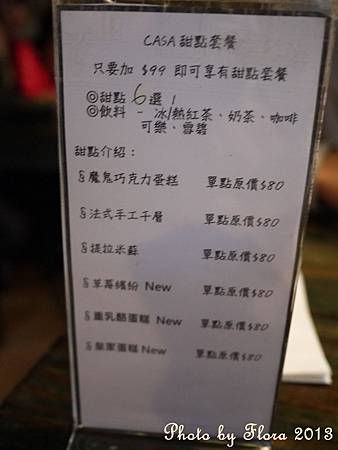 CASA 甜點套餐
只要加 $99 即可享有甜點套餐
◎甜點 6 選 1
◎飲料 - 冰/熱紅茶、奶茶、咖啡
可樂、雪碧
甜點介紹：
§魔鬼巧克力蛋糕 單點原價$80
§法式手工千層 單點原價$80
§提拉米蘇 單點原價$80
§草莓繽紛 New 單點原價$80
§重乳酪蛋糕 New 單點原價$80
§皇家蛋糕 New 單點原價$80
Photo by Flora 2013